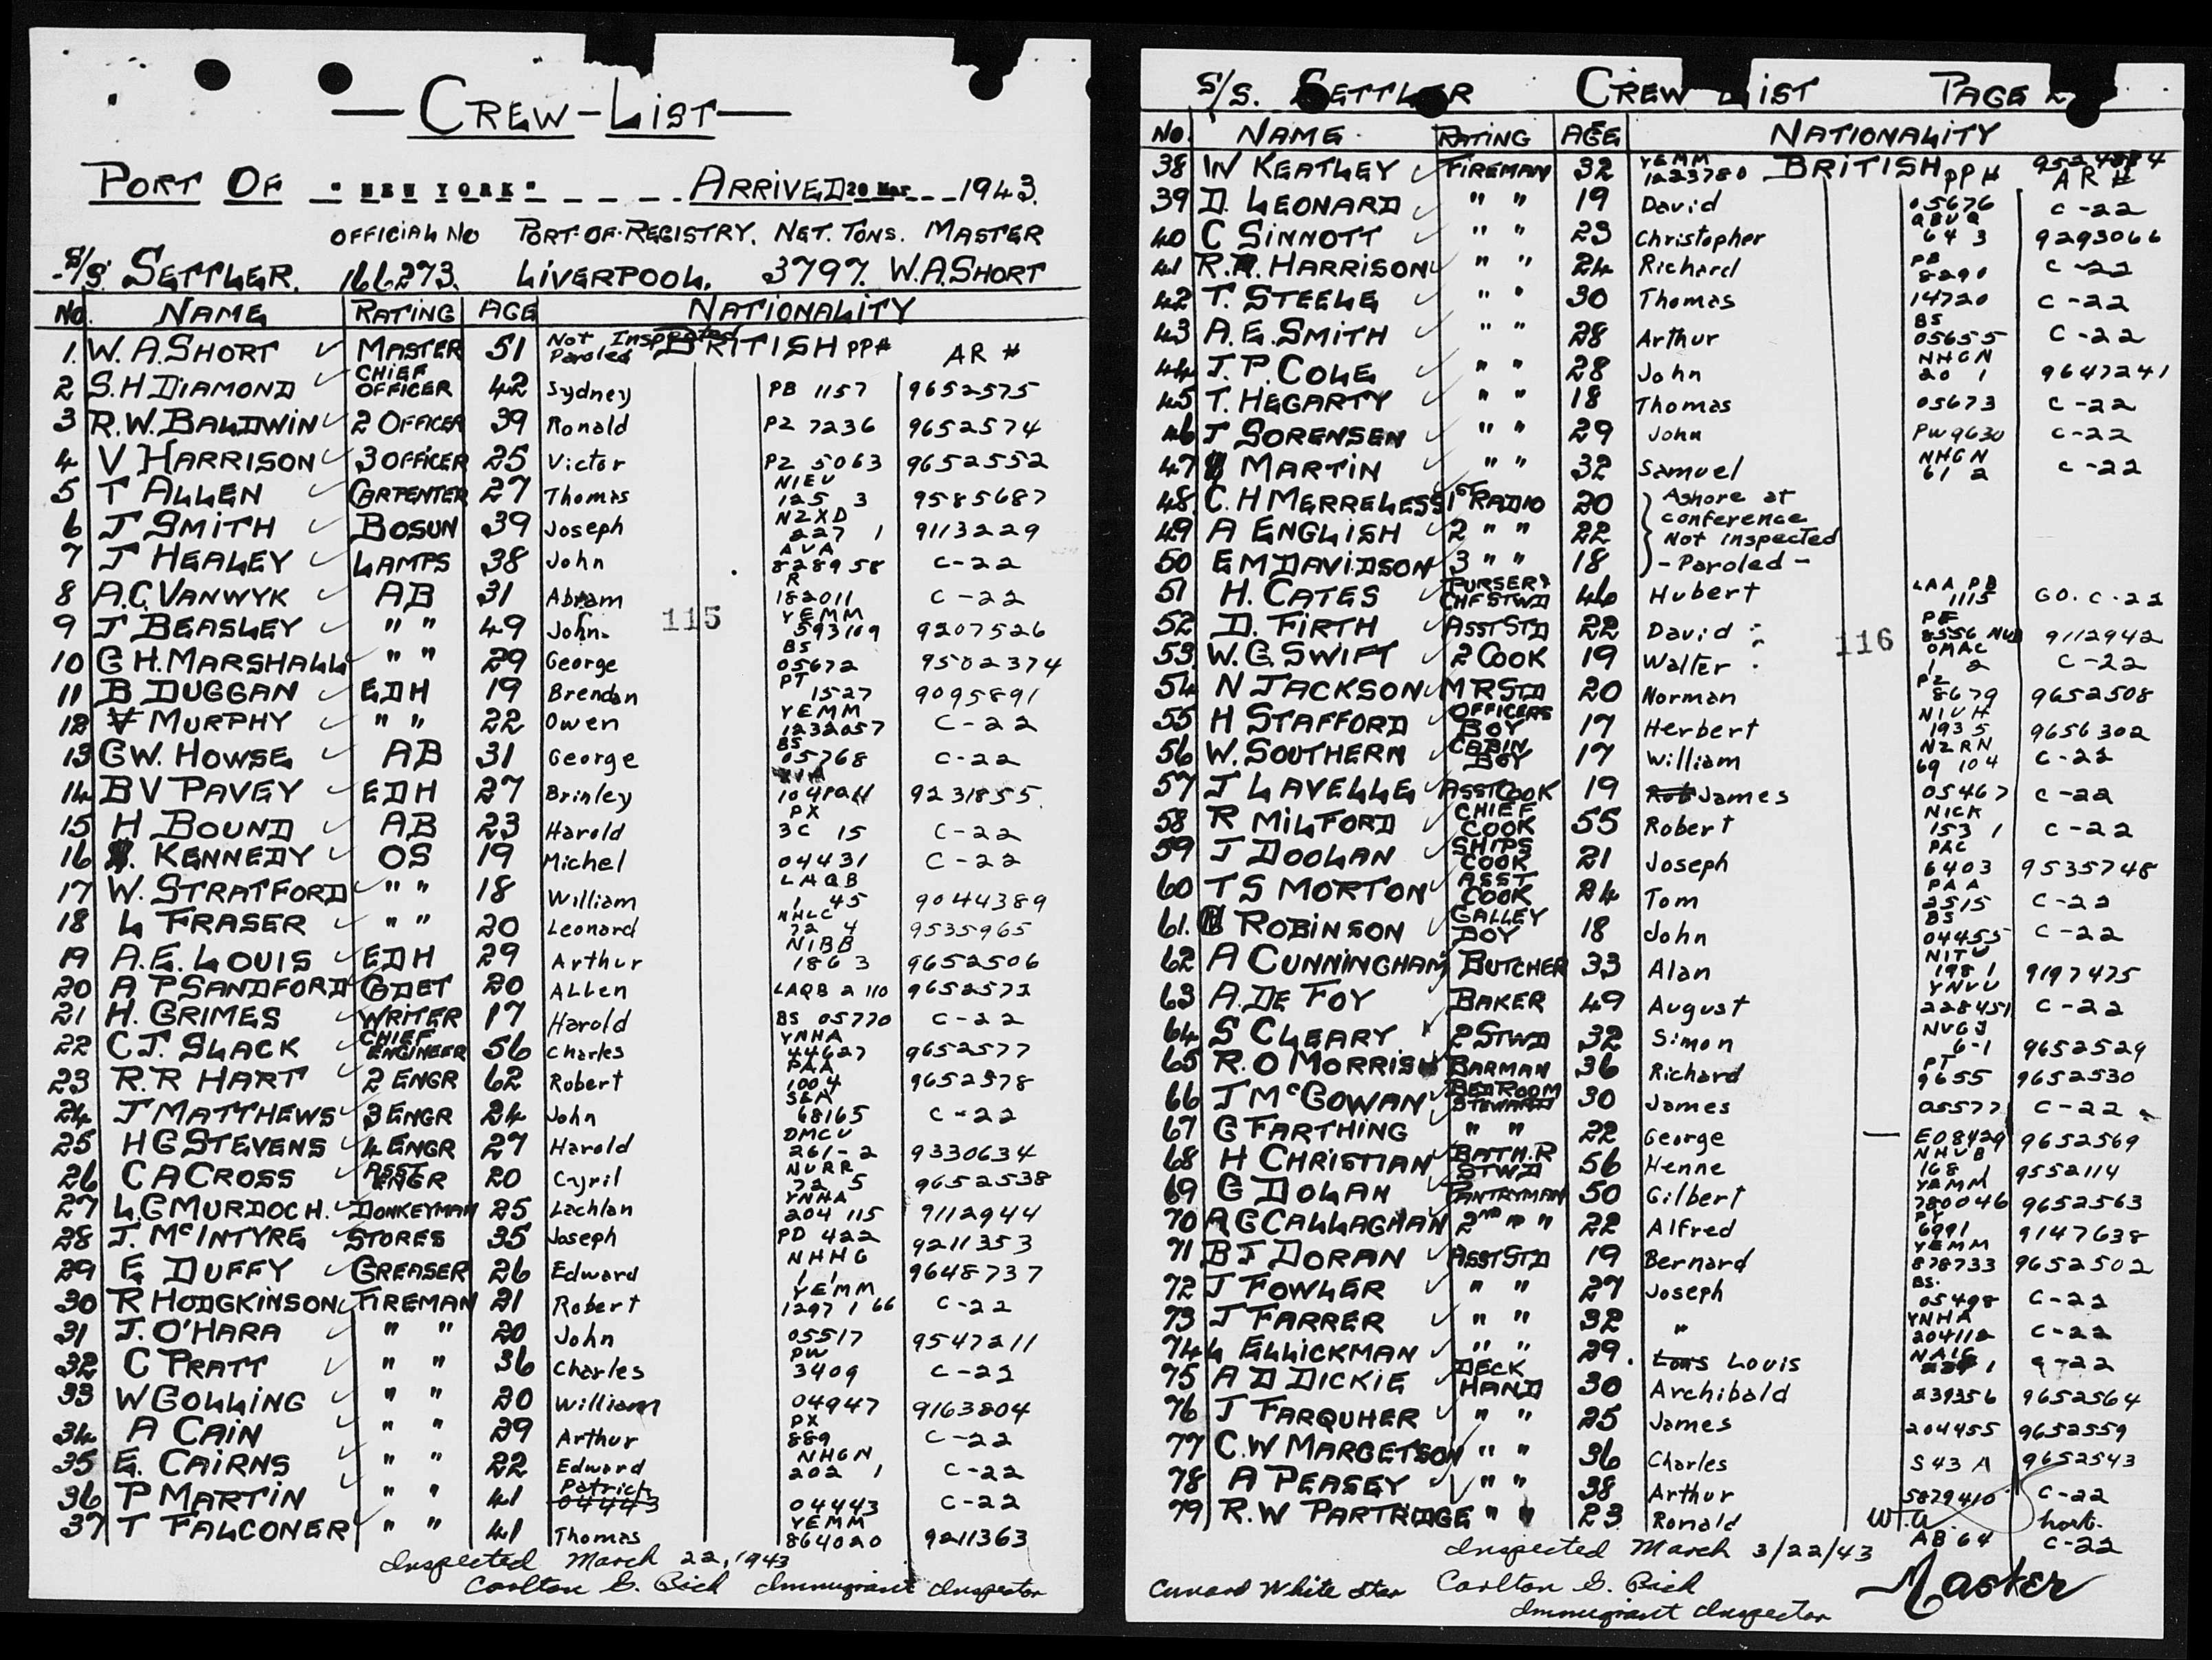 — CREW-LIST —
PORT OF "NEW YORK" ARRIVED 20 Mar 1943.
OFFICIAL NO PORT-OF-REGISTRY. NET. TONS. MASTER
S/S. SETTLER. 166273. LIVERPOOL. 3797. W.A.SHORT
No. NAME RATING AGE NATIONALITY
1. W.A.SHORT ✓ MASTER 51 Not Inspected Paroled BRITISH PP# AR #
2 S.H DIAMOND ✓ CHIEF OFFICER 42 Sydney PB 1157 9652575
3 R.W.BALDWIN ✓ 2 OFFICER 39 Ronald PZ 7236 9652574
4 V HARRISON ✓ 3 OFFICER 25 Victor PZ 5063 9652552
5 T ALLEN ✓ CARPENTER 27 Thomas NIEU 125 3 9585687
6 J SMITH ✓ BOSUN 39 Joseph NZXD 227 1 9113229
7 J HEALEY ✓ LAMPS 38 John AVA 828958 C-22
8 A.C.VANWYK ✓ AB 31 Abram R 182011 C-22
9 J BEASLEY ✓ " " 49 John. YEMM 593109 9207526
115
10 G H.MARSHALL " " 29 George BS 05672 9502374
11 B DUGGAN ✓ EDH 19 Brendan PT 1527 9095891
12 MURPHY ✓ " " 22 Owen YEMM 1232057 C-22
13 G.W. HOWSE ✓ AB 31 George BS 05768 C-22
14 B V PAVEY ✓ EDH 27 Brinley 9231855.
15 H BOUND ✓ AB 23 Harold PX 3C 15 C-22
16 KENNEDY ✓ OS 19 Michel 04431 C-22
17 W. STRATFORD ✓ " " 18 William LAQB 1 45 9044389
18 L FRASER ✓ " " 20 Leonard NHLC 72 4 9535965
19 A.E. LOUIS ✓ EDH 29 Arthur NIBB 186 3 9652506
20 A P SANDFORD CADET 20 Allen LAQB 2 110 9652572
21 H. GRIMES ✓ WRITER 17 Harold BS 05770 C-22
22 C.J. SLACK ✓ CHIEF ENGINEER 56 Charles YNHA 44627 9652577
23 R.R HART ✓ 2 ENGR 62 Robert PAA 1004 9652578
24 J MATTHEWS ✓ 3 ENGR 24 John S&A 68165 C-22
25 H G STEVENS ✓ 4 ENGR 27 Harold OMCU 261-2 9330634
26 C A CROSS ✓ ASST ENGR 20 Cyril NURR 72 5 9652538
27 L.G MURDOCH. ✓ DONKEYMAN 25 Lachlan YNHA 204 115 9112944
28 J. McINTYRE ✓ STORES 35 Joseph PD 422 9211353
29 E DUFFY ✓ GREASER 26 Edward NHHG 1 1 9648737
30 R HODGKINSON ✓ FIREMAN 21 Robert YEMM 1297166 C-22
31 J. O'HARA ✓ " " 20 John 05517 9547211
32 C PRATT ✓ " " 36 Charles PW 3409 C-22
33 W GOLLING ✓ " " 20 William 04947 9163804
34 A CAIN ✓ " " 29 Arthur PX 889 C-22
35 E. CAIRNS ✓ " " 22 Edward NHGN 202 1 C-22
36 P MARTIN ✓ " " 41 Patrick 04443 04443 C-22
37 T FALCONER ✓ " " 41 Thomas YEMM 864020 9211363
Inspected March 22, 1943
Carlton G. Bick Immigrant Inspector
S/S. SETTLER CREW LIST PAGE 2
No. NAME RATING AGE NATIONALITY
38 W KEATLEY ✓ FIREMAN 32 YEMM 1223780 BRITISH PP# AR #
39 D. LEONARD ✓ " " 19 David 05676 C-22
40 C SINNOTT ✓ " " 23 Christopher QBUQ 64 3 9293066
41 R. HARRISON ✓ " " 24 Richard PB 8290 C-22
42 T. STEELE ✓ " " 30 Thomas 14720 C-22
43 A.E.SMITH ✓ " " 28 Arthur BS 05655 C-22
44 J.P.COLE ✓ " " 28 John NHGN 20 1 9647241
45 T. HEGARTY ✓ " " 18 Thomas 05673 C-22
46 J SORENSEN ✓ " " 29 John PW9630 C-22
47 MARTIN ✓ " " 32 Samuel NHGN 61 2 C-22
48. C.H MERRELESS 1st RADIO 20 Ashore at
49 A ENGLISH ✓ 2 " " 22 conference Not inspected
50 E M DAVIDSON 3 " " 18 - Paroled -
51 H. CATES ✓ PURSER & CHF STWD 46 Hubert LAA PB 1115 GO. C-22
52 D. FIRTH ✓ ASST STD 22 David PE 8556 9112942
116
53 W.G.SWIFT ✓ 2 COOK 19 Walter OMAC 1 2 C-22
54 N JACKSON ✓ MR STD 20 Norman PZ 8679 9652508
55 H STAFFORD ✓ OFFICERS BOY 17 Herbert NIUH 193 5 9656302
56 W. SOUTHERN ✓ CABIN BOY 17 William NZRN 69 104 C-22
57 J LAVELLE ✓ ASST COOK 19 Rob James 05467 C-22
58 R MILFORD ✓ CHIEF COOK 55 Robert NICK 153 1 C-22
59 J DOOLAN ✓ SHIPS COOK 21 Joseph PAC 6403 9535748
60 T S MORTON ✓ ASST COOK 24 Tom PAA 2515 C-22
61. ROBINSON ✓ GALLEY BOY 18 John BS 04455 C-22
62 A CUNNINGHAM BUTCHER 33 Alan NITU 198 1 9197475
63 A. DE FOY ✓ BAKER 49 August YNVU 228451 C-22
64 S CLEARY ✓ 2 STWD 32 Simon NVGJ 6-1 9652529
65 R. O MORRISH BARMAN 36 Richard PT 9655 9652530
66 J McGOWAN ✓ BEDROOM STEWARD 30 James 05577 C-22
67 G FARTHING ✓ " " 22 George — E08429 9652569
68 H CHRISTIAN ✓ BATH.R STWD 56 Henne NHUB 168 1 9552114
69 G DOLAN ✓ PANTRYMAN 50 Gilbert YEMM 780046 9652563
70 A G CALLAGHAN 2nd " " 22 Alfred 6991 9147638
71 B J DORAN ✓ ASST STD 19 Bernard YEMM 878733 9652502
72 J FOWLER ✓ " " 27 Joseph BS. 05498 C-22
73 J FARRER ✓ " " 32 " YNHA 204112 C-22
74 L ELLICKMAN ✓ " " 29. Louis
75 A D DICKIE ✓ DECK HAND 30 Archibald 239356 9652564
76 J FARQUHER ✓ " " 25 James 204455 9652559
77 C.W MARGETSON " " 36 Charles S 43 A 9652543
78 A PEASEY ✓ " " 38 Arthur 5879410 C-22
79 R.W PARTRIDGE " " 23 Ronald AB 64 C-22
W.A. Short.
Master
Inspected March 3/22/43
Cunard White Star Carlton G. Bick
Immigrant Inspector